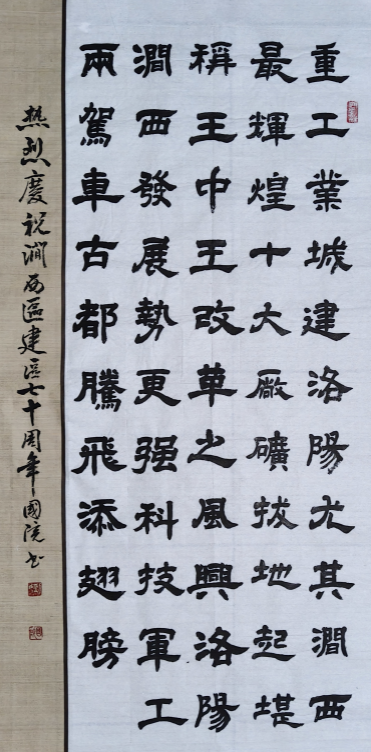 重工業城建洛陽尤其澗西
最輝煌十大廠礦拔地起堪
稱王中王改革之風興洛陽
澗西發展勢更强科技軍工
兩駕車古都騰飛添翅膀
热烈慶祝澗西區建區七十周年、國院书